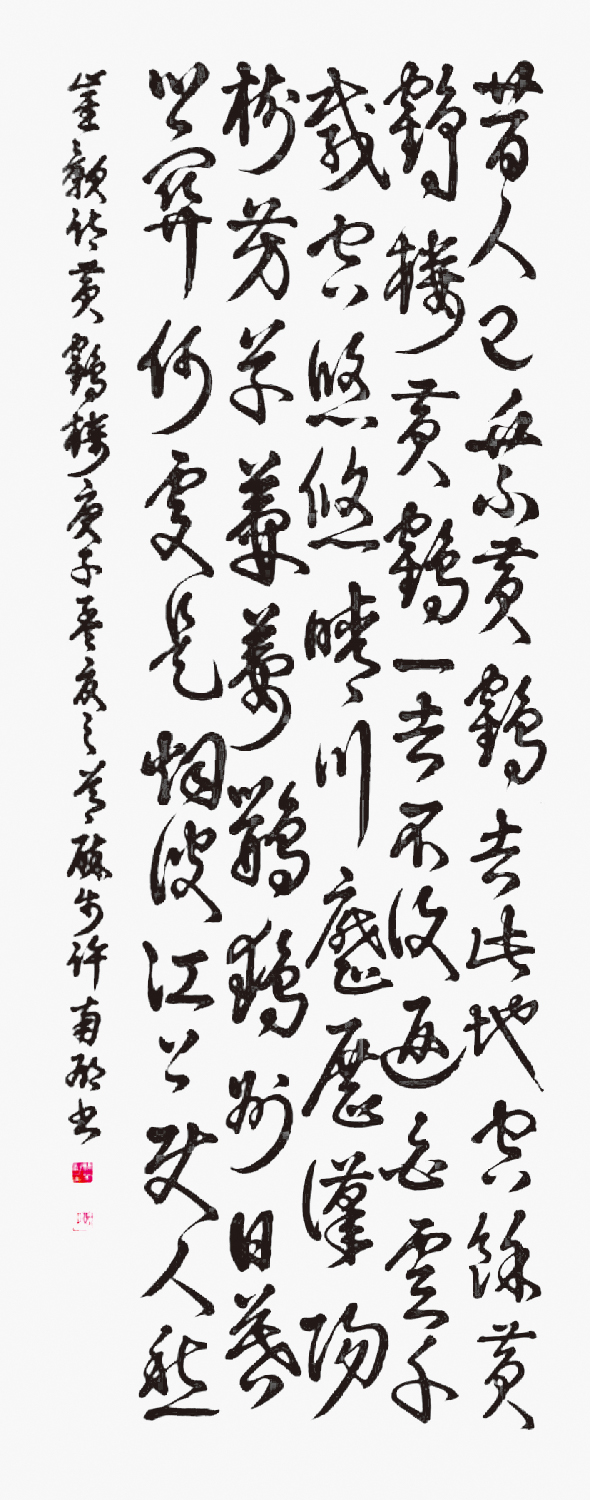 昔人已乘黃鶴去此地空餘黃
鶴樓黃鶴一去不復返白雲千
載空悠悠晴川歷歷漢陽
樹芳草萋萋鸚鵡洲日暮
鄉關何處是烟波江上使人愁
崔顥詩黃鶴樓庚子孟夏之許南書